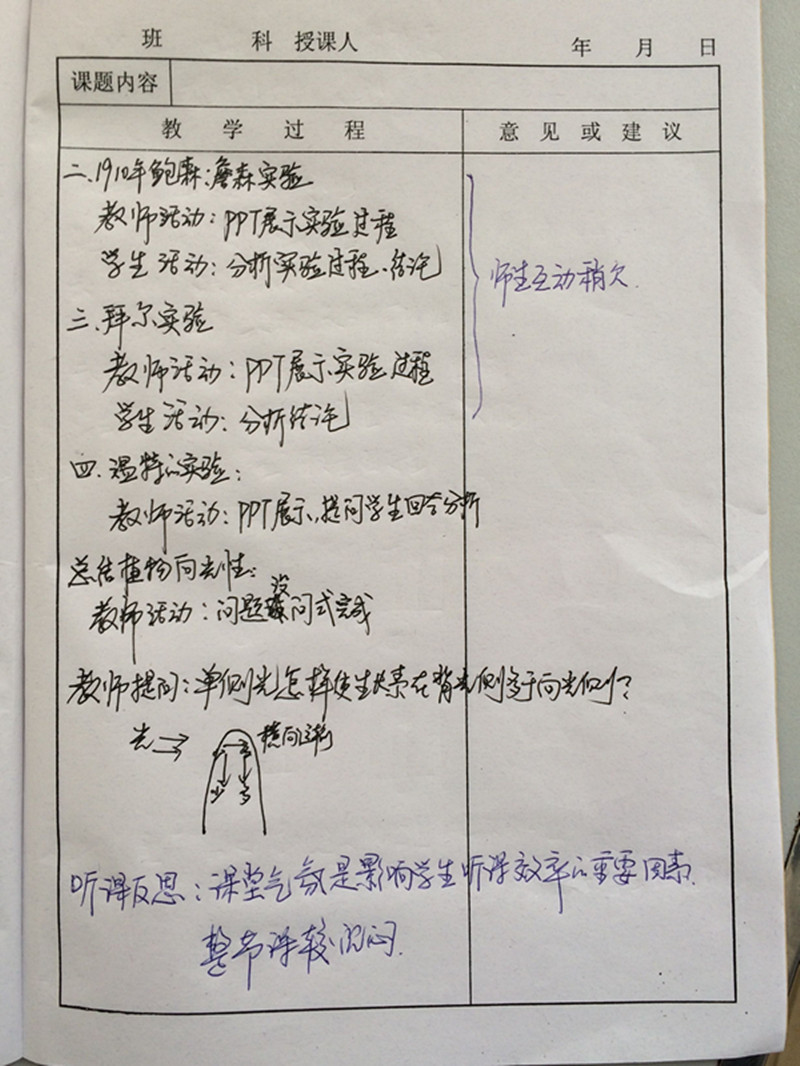 班 科 授课人 年 月 日
课题内容
教 学 过 程 意 见 或 建 议
二、1910年鲍森:詹森实验
教师活动:PPT展示实验过程
学生活动:分析实验过程、结论
师生互动稍欠.
三、拜尔实验
教师活动:PPT展示实验过程
学生活动:分析结论
四、温特的实验:
教师活动:PPT展示,提问学生回答分析
总结植物向光性:
教师活动:问题设问式完成
教师提问:单侧光怎样使生长素在背光侧多于向光侧?
光 横向运输
少 多
听课反思:课堂气氛是影响学生听课效率的重要因素.
整节课较沉闷.